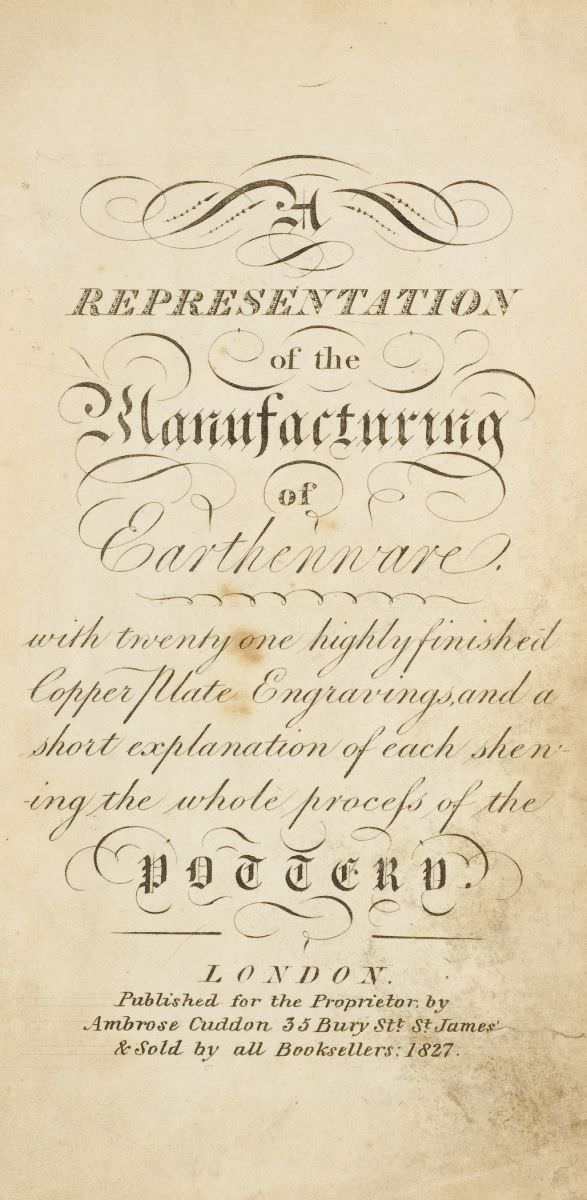 A
REPRESENTATION
of the
Manufacturing
of
Earthenware.
with twenty one highly finished
Copper Plate Engravings, and a
short explanation of each shew-
-ing the whole proceſs of the
POTTERY.
LONDON.
Published for the Proprietor, by
Ambrose Cuddon 35 Bury Stt. St. James'
& Sold by all Booksellers: 1827.